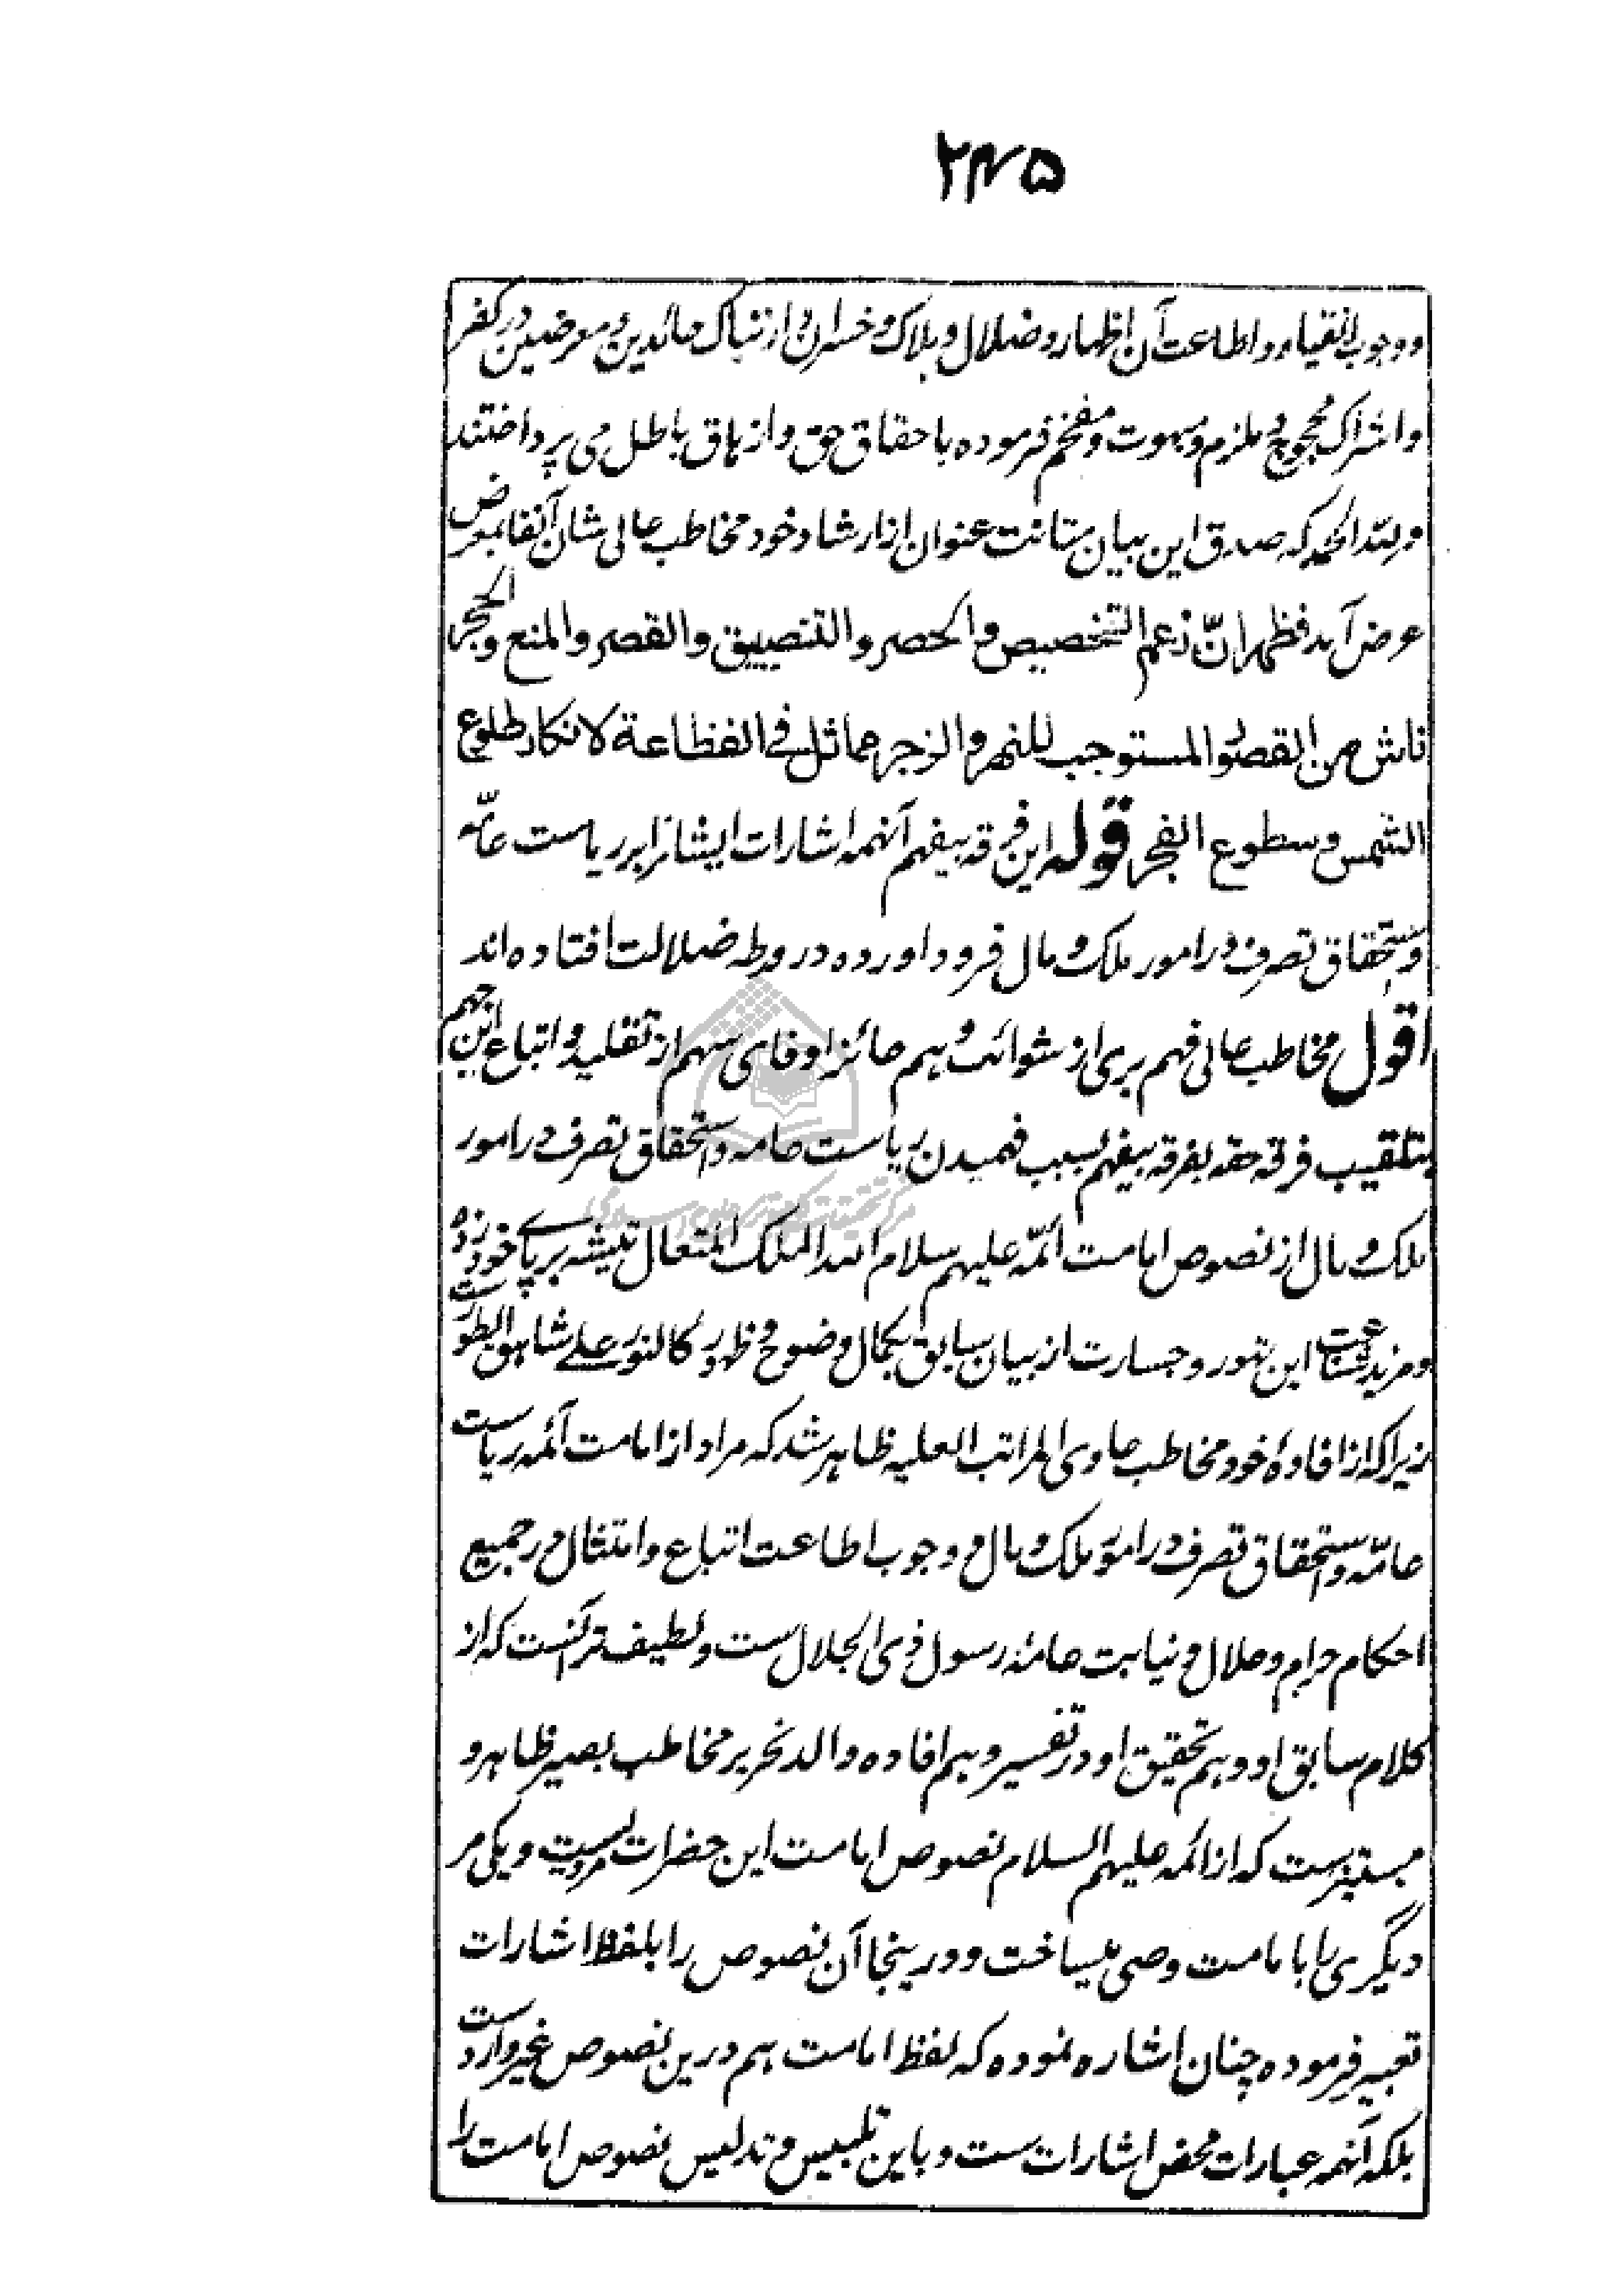 ۲۴۵
و وجوب انقیاد و اطاعت آن اظهار و ضلال و هلاک و خسران و ارتباک حائدین و معرضین در کفر
و اشراک محجوج و ملزم و مبهوت و مفخم فرموده باحقاق حق و ازهاق باطل می پرداختند
و لله الحمد که صدق این بیان متانت عنوان از ارشاد خود مخاطب عالی شان آنفا بمعرض
عرض آمد فظهر ان زعم التخصیص و الحصر و التضییق و القصر و المنع و الحجر
ناش من القصور المستوجب للنهر و الزجر مماثل فی الفظاعة لانکار طلوع
الشمس و سطوع الفجر قوله این فرقه بیفهم آنهمه اشارات ایشانرا بر ریاست عامّه
و استحقاق تصرف در امور ملک و مال فرود اورده در ورطه ضلالت افتاده اند
اقول مخاطب عالی فهم بری از شوائب وهم حائز اوفای سهم از تقلید و اتباع ابن جهم
بتلقیب فرقه حقه بفرقه بیفهم بسبب فهمیدن ریاست عامه و استحقاق تصرف در امور
ملک و مال از نصوص امامت ائمّه علیهم سلام الله الملک المتعال تیشه بر پای خود زده
و مزید شناعت این تهور و جسارت از بیان سابق بکمال وضوح و ظهور کالنور علے شاهق الطورست
زیرا که از افادهٔ خود مخاطب حاوی المراتب العلیه ظاهر شد که مراد از امامت آئمه ریاست
عامّه و استحقاق تصرف در امور ملک و مال و وجوب اطاعت اتباع و امتثال در جمیع
احکام حرام و حلال و نیابت عامهٔ رسول ذی الجلال ست و لطیف تر آنست که از
کلام سابق او و هم تحقیق او در تفسیر و هم افاده والد نحریر مخاطب بصیر ظاهر و
مستنیرست که از ائمه علیهم السلام نصوص امامت این حضرات مرویست و یکی مر
دیگری را بامامت وصی میساخت و در ینجا آن نصوص را بلفظ اشارات
تعبیر فرموده چنان اشاره نموده که لفظ امامت هم درین نصوص غیر واردست
بلکه آنهمه عبارات محض اشارات ست و باین تلبیس و تدلیس نصوص امامت را